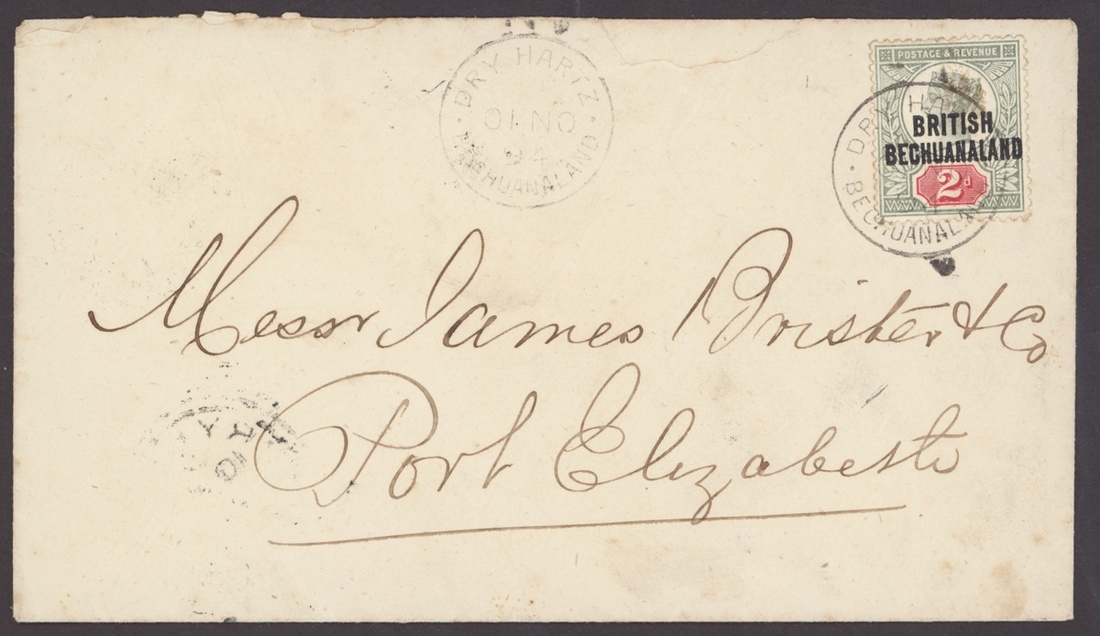 DRY HARTZ
01 NO
94
BECHUANALAND
POSTAGE & REVENUE
BRITISH
BECHUANALAND
2d
DRY HA
BECHUANALAN
Messr James Brister & Co
Port Elizabeth